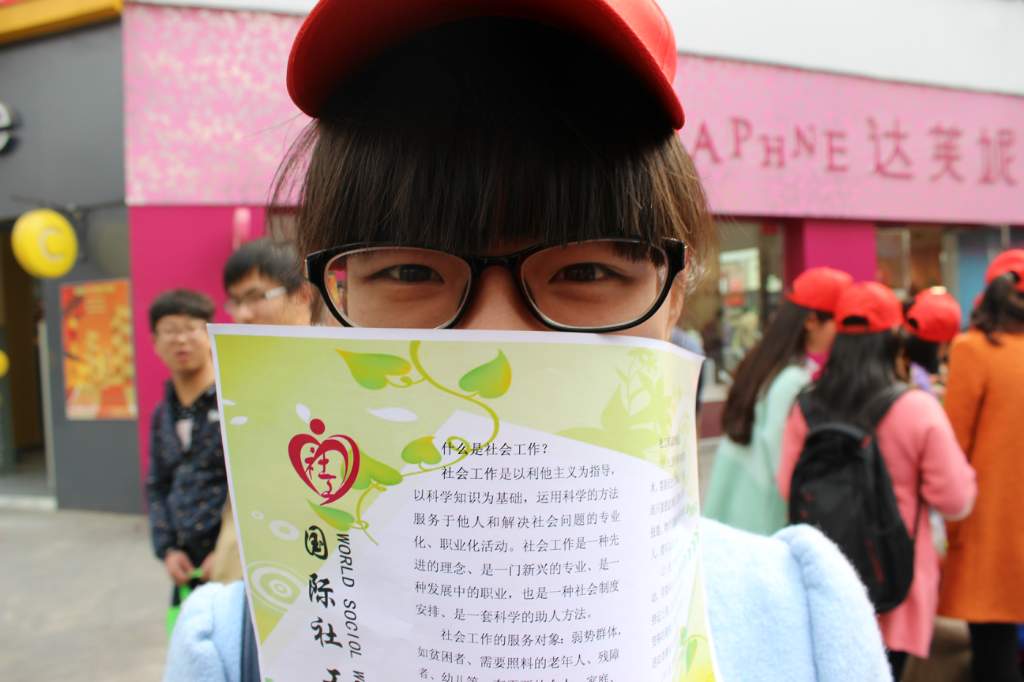 APHNE 达芙妮
什么是社会工作?
社会工作是以利他主义为指导,
以科学知识为基础,运用科学的方法
服务于他人和解决社会问题的专业
化、职业化活动。社会工作是一种先
进的理念、是一门新兴的专业、是一
种发展中的职业,也是一种社会制度
安排、是一套科学的助人方法。
社会工作的服务对象:弱势群体,
如贫困者、需要照料的老年人、残障
国际社
WORLD SOCIOL W